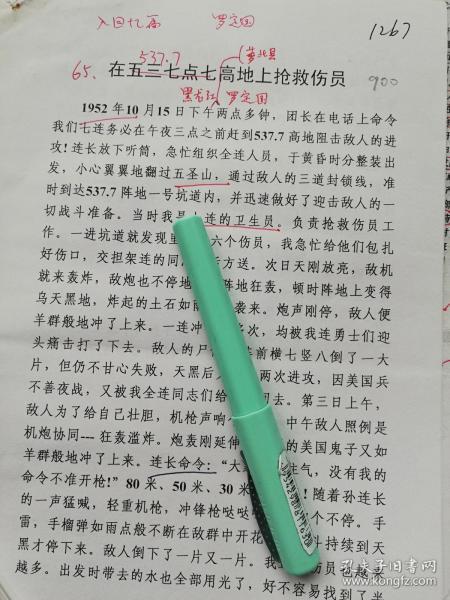 入回忆高 罗定国
1267
537.7
(萝北县
65. 在五三七点七高地上抢救伤员
900
黑龙江 罗定国
1952年10月15日下午两点多钟,团长在电话上命令
我们七连务必在午夜三点之前赶到537.7高地阻击敌人的进
攻!连长放下听筒,急忙组织全连人员,于黄昏时分整装出
发,小心翼翼地翻过五圣山,通过敌人的三道封锁线,准
时到达537.7阵地一号坑道内,并迅速做好了迎击敌人的一
切战斗准备。当时我是 连的卫生员。负责抢救伤员工
作。一进坑道就发现里 六个伤员,我急忙给他们包扎
好伤口,交担架连的同 方送。次日天刚放亮,敌机
就来轰炸,敌炮也不停地 阵地狂轰,顿时阵地上变得
乌天黑地,炸起的土石如 袭来。炮声刚停,敌人便
羊群般地冲了上来。一连冲 多次,均被我连勇士们迎
头痛击打了下去。敌人的尸 前横七竖八倒了一大
片,但仍不甘心失败,天黑后 两次进攻,因美国兵
不善夜战,又被我全连同志们给 回去。第三日上午,
敌人为了给自己壮胆,机枪声响 中午敌人照例是
机炮协同---狂轰滥炸。炮轰刚延伸 的美国鬼子又如
羊群般地冲了上来。连长命令:“大 生气,没有我的
命令不准开枪!”80米、50米、30米 !随着孙连长
的一声猛喊,轻重机枪,冲锋枪哒哒 个不停。手
雷,手榴弹如雨点般不断在敌群中开花 斗持续到天
黑才停下来。敌人倒下了一片又一片。我 伤员也越
越多。出发时带去的水也全部用光了,好不容易找到了半
孔夫子旧书网